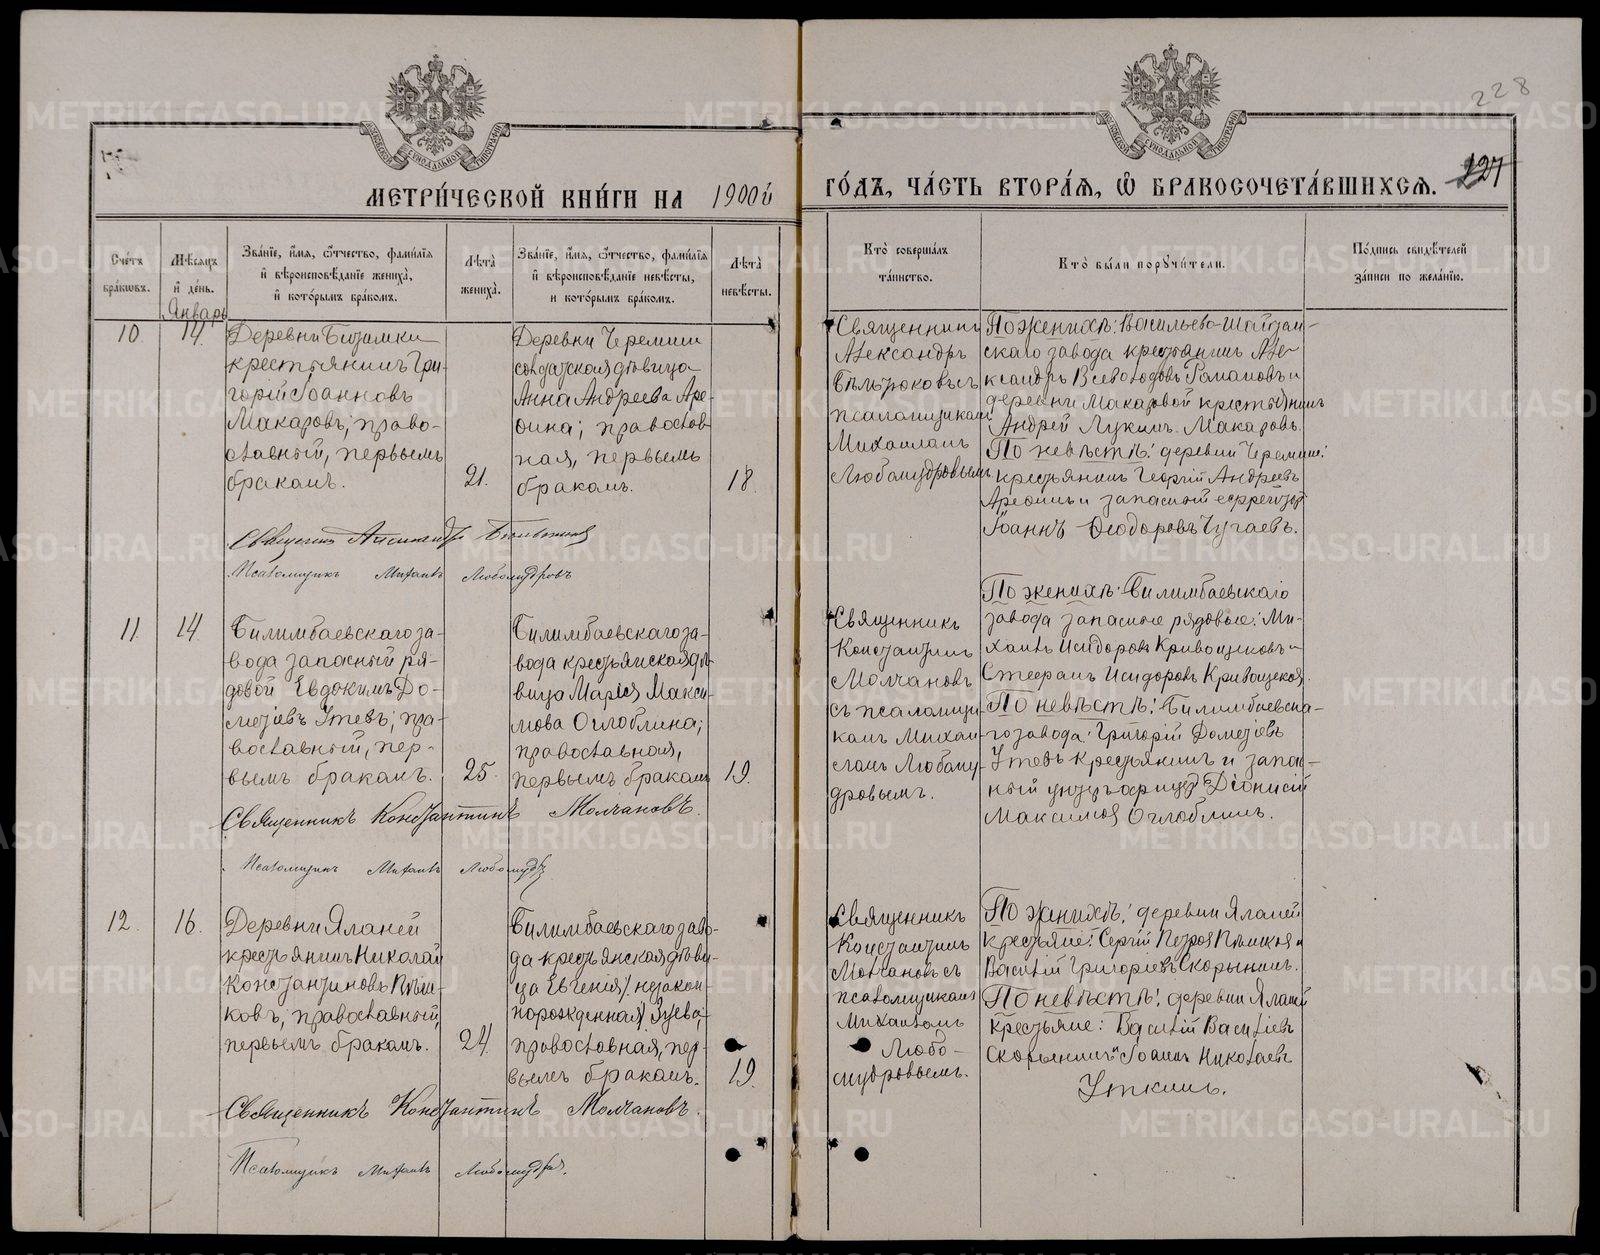 228
227
МЕТРИЧЕСКОЙ КНИГИ НА 1900й ГОДЪ, ЧАСТЬ ВТОРАЯ, Ѡ БРАКОСОЧЕТАВШИХСЯ.
Счетъ браковъ.
Мѣсяцъ и день.
Званіе, имя, отчество, фамилія
и вѣроисповѣданіе жениха,
и которымъ бракомъ.
Лѣта жениха.
Званіе, имя, отчество, фамилія
и вѣроисповѣданіе невѣсты,
и которымъ бракомъ.
Лѣта невѣсты.
Кто совершалъ
таинство.
Кто были поручители.
Подпись свидѣтелей
записи по желанію.
Январь
10.
14.
Деревни
крестьянинъ Гри-
горій Іоанновъ
Макаровъ, право-
славный, первымъ
бракомъ.
21.
Деревни Черемши
солдатская дѣвица
Анна Андреева Аре-
фина; православ
ная, первымъ
бракомъ.
18.
Священникъ
Александръ
съ
псаломщикомъ
Михаиломъ
Любомудровымъ
По женихѣ: Васильево-Шайтан-
скаго завода крестьянинъ Але-
ксандръ Всеволодовъ и
деревни Макаровой крестьянинъ
Андрей Лукинъ Макаровъ.
По невѣстѣ: деревни Черемши:
крестьянинъ Георгій Андреевъ
Арефинъ и запасный ефрейторъ
Іоаннъ Ѳеодоровъ Чугаевъ.
Священникъ Александръ
Псаломщикъ Михаилъ Любомудровъ
11.
14.
Билимбаевскаго за-
вода запасный ря-
довой Евдокимъ До-
метіевъ Утевъ, пра-
вославный, пер-
вымъ бракомъ.
25.
Билимбаевскаго за-
вода крестьянская дѣ-
вица Марія Макси-
мова Оглоблина;
православная,
первымъ бракомъ
19.
Священникъ
Константинъ
Молчановъ
съ псаломщи-
комъ Михаи-
ломъ Любому-
дровымъ.
По женихѣ: Билимбаевскаго
завода запасные рядовые: Ми-
хаилъ Исидоровъ Кривощековъ и
Стефанъ Исидоровъ Кривощековъ.
По невѣстѣ: Билимбаевска-
го завода: Григорій Дометіевъ
Утевъ крестьянинъ и запас-
ный унтеръ-офицеръ Діонисій
Максимовъ Оглоблинъ.
Священникъ Константинъ Молчановъ.
Псаломщикъ Михаилъ Любомудр
12.
16.
Деревни Яланей
крестьянинъ Николай
Константиновъ Пѣш-
ковъ, православный,
первымъ бракомъ.
24.
Билимбаевскаго заво-
да крестьянская дѣви-
ца Евгенія (незакон-
норожденная) Зуева,
православная, пер-
вымъ бракомъ.
19.
Священникъ
Константинъ
Молчановъ съ
псаломщикомъ
Михаиломъ
Любо-
мудровымъ.
По женихѣ: деревни Яланей
крестьяне: Сергій Петровъ Пѣшковъ и
Василій Григорьевъ Скорынинъ.
По невѣстѣ: деревни Яланей
крестьяне: Василій Васильевъ
Скорынинъ и Іоаннъ Николаевъ
Уткинъ.
Священникъ Константинъ Молчановъ.
Псаломщикъ Михаилъ Любомудровъ.
METRIKI.GASO-URAL.RU